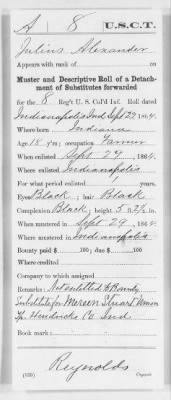 A | 8 | U.S.C.T.
Julius Alexander
Appears with rank of
Muster and Descriptive Roll of a Detach-
ment of Substitutes forwarded
for the 8 Reg't U. S. Col'd Inf. Roll dated
Indianapolis Ind Sept 29, 1864.
Where born Indiana
Age 18 y'rs; occupation Farmer
When enlisted Sept 29, 1864.
Where enlisted Indianapolis
For what period enlisted years.
Eyes Black; hair Black
Complexion Black; height 5 ft. 2½ in.
When mustered in Sept 29, 1864.
Where mustered in Indianapolis
Bounty paid $ 100; due $ 100
Where credited
Company to which assigned
Remarks: Not entitled to Bounty
Substitute for Stuart Union
Tp. Hendricks Co Ind
Book mark:
Reynolds
(339) Copyist.